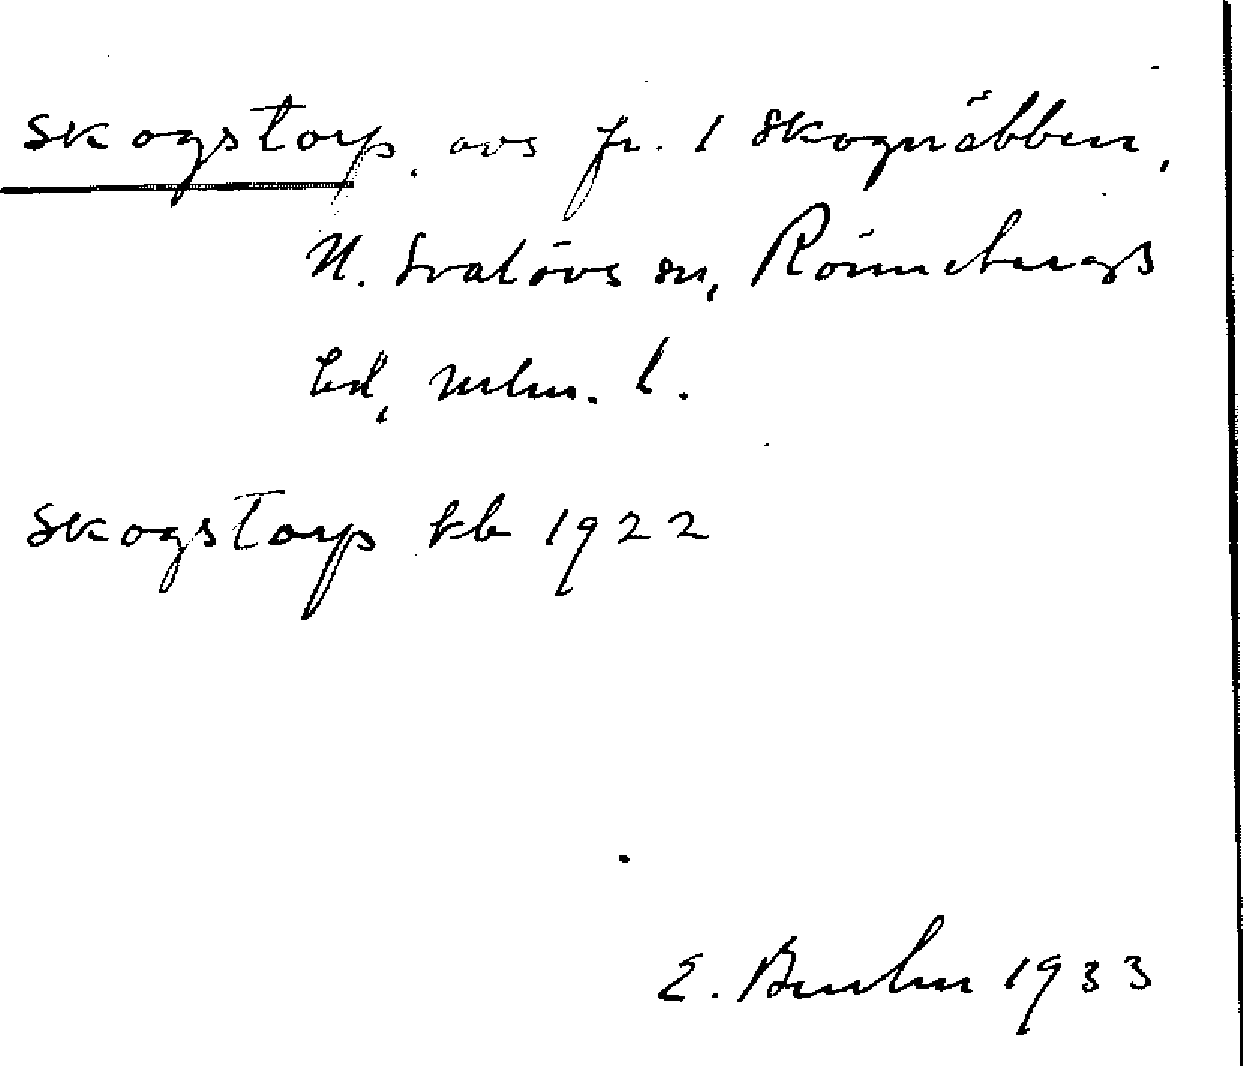 Skogstorp, avs fr. 1 Skognäbben,
N. Svalövs sn, Rönnebergs
hd, Mlm. l.
Skogstorp kb 1922
E. 1933